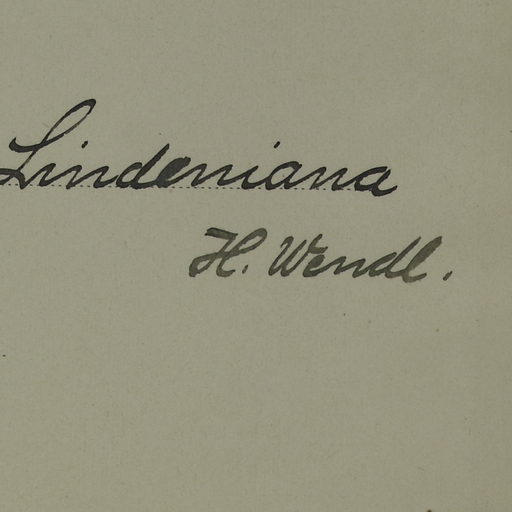 Lindeniana
H. Wendl.